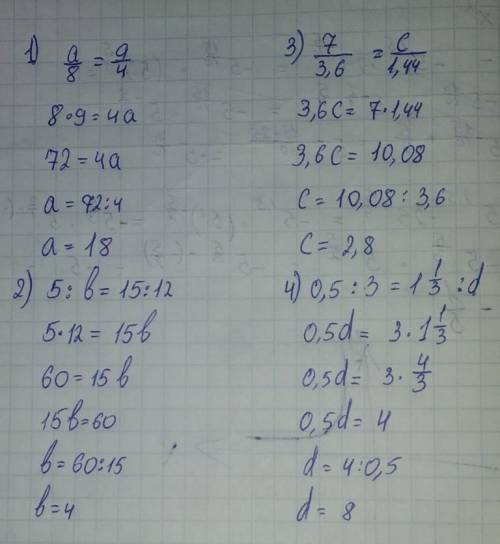 1) a/8 = 9/4
8·9=4a
72=4a
a=72:4
a=18
2) 5:b=15:12
5·12=15b
60=15b
15b=60
b=60:15
b=4
3) 7/3,6 = c/1,44
3,6c=7·1,44
3,6c=10,08
c=10,08:3,6
c=2,8
4) 0,5:3=1 1/3:d
0,5d=3·1 1/3
0,5d=3·4/3
0,5d=4
d=4:0,5
d=8